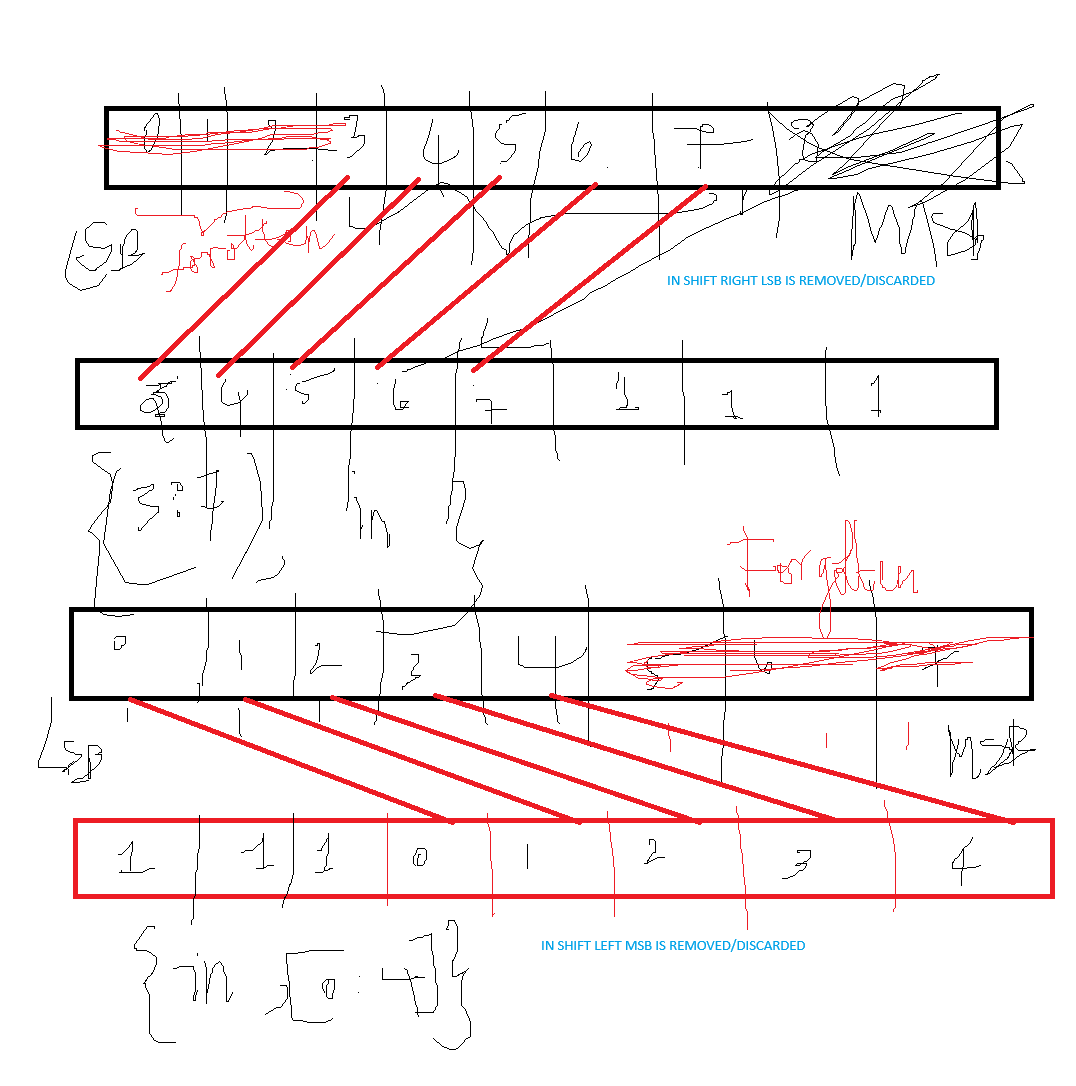 0 1 2 3 4 5 6 7 8
LSB MSB
forgotten
IN SHIFT RIGHT LSB IS REMOVED/DISCARDED
4 5 6 7 1 1 1
in
Forgotten
0 1 2 3 4 5 6 7
LSB MSB
1 1 1 0 1 2 3 4
IN SHIFT LEFT MSB IS REMOVED/DISCARDED
{in, [0:4]}